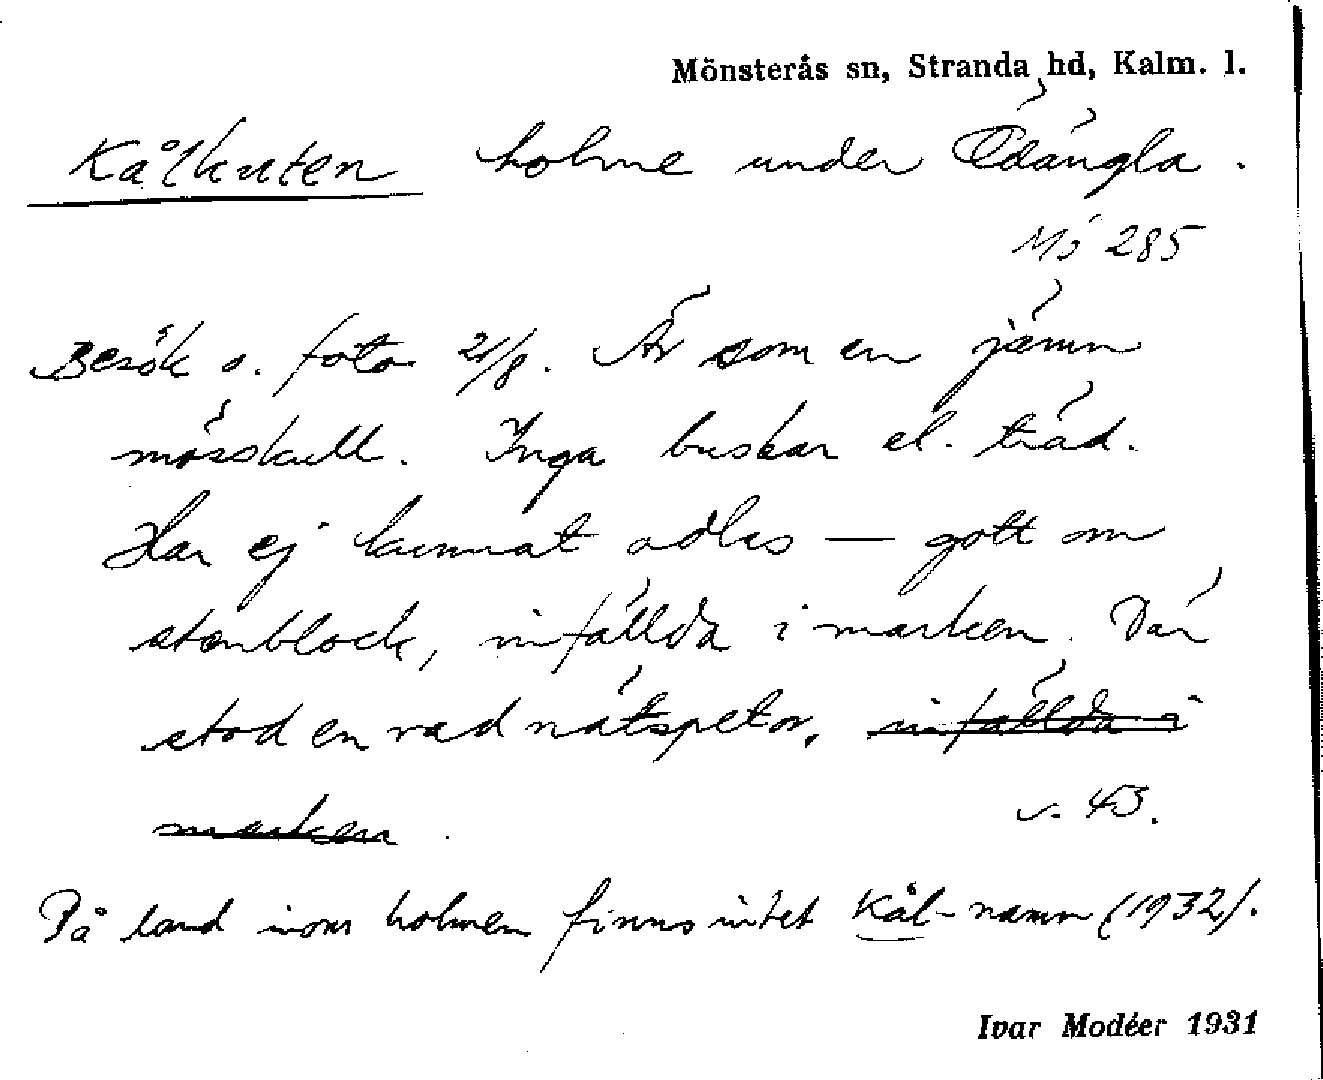 Mönsterås sn, Stranda hd, Kalm. l.
Kålkuten holme under Ödängla.
Mö 285
Besök o. foto 21/8. Är som en jämn
mösskull. Inga buskar el. träd.
Har ej kunnat odlas — gott om
stenblock, infällda i marken. Där
stod en rad nätspetor, infällda i
marken.
s. 43.
På land inom holmen finns intet Kål-namn (1932).
Ivar Modéer 1931